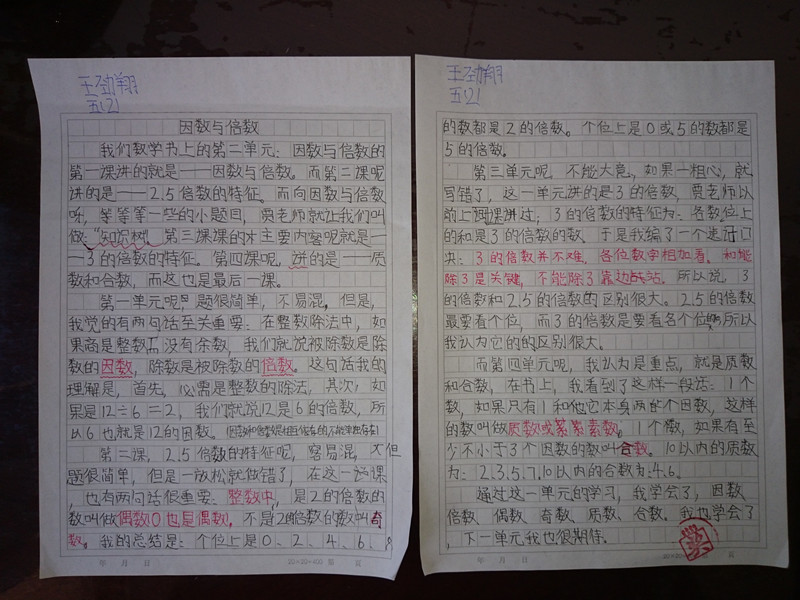 王劲翔
五(2)
因数与倍数
我们数学书上的第二单元:因数与倍数的
第一课讲的就是——因数与倍数。而第二课呢
讲的是——2.5倍数的特征。而向因数与倍数
呀,等等等一些的小题目,贾老师就让我们叫
做:"知识树"。第三课课的主要内容呢就是—
—3的倍数的特征。第四课呢,讲的是——质
数和合数,而这也是最后一课。
第一单元呢,题很简单,不易混。但是,
我觉的有两句话至关重要:在整数除法中,如
果商是整数没有余数,我们就说被除数是除
数的因数,除数是被除数的倍数。这句话我的
理解是,首先,必需是整数的除法,其次,如
果是12÷6=2,我们就说12是6的倍数,所
以6也就是12的因数。
第二课,2.5倍数的特征呢,容易混,不但
题很简单,但是一放松就做错了,在这一课
,也有两句话很重要:整数中,是2的倍数的
数叫做偶数0也是偶数,不是2的倍数的数叫奇
数。我的总结是:个位上是0、2、4、6、8
年 月 日
20×20=400 第 页
王劲翔
五(2)
的数都是2的倍数。个位上是0或5的数都是
5的倍数。
第三单元呢,不能大意,如果一粗心,就
写错了,这一单元讲的是3的倍数,贾老师以
前上课讲过;3的倍数的特征为:各数位上
的和是3的倍数的数。于是我编了一个速记口
决:3的倍数并不难,各位数字相加看。和能
除3是关键,不能除3靠边站。所以说,3
的倍数和2.5的倍数的区别很大。2.5的倍数
最要看个位,而3的倍数是要看各个位,所以
我认为它的的区别很大。
而第四单元呢,我认为是重点,就是质数
和合数,在书上,我看到了这样一段话:1个
数,如果只有1和他它本身两个因数,这样
的数叫做质数或素数。1个数,如果有至
少不小于3个因数的数叫合数。10以内的质数
为:2.3.5.7.10以内的合数为:4.6.
通过这一单元的学习,我学会了,因数、
倍数、偶数、奇数、质数、合数。我也学会了
,下一单元我也很期待。
年 月 日
20×20=400 第 页